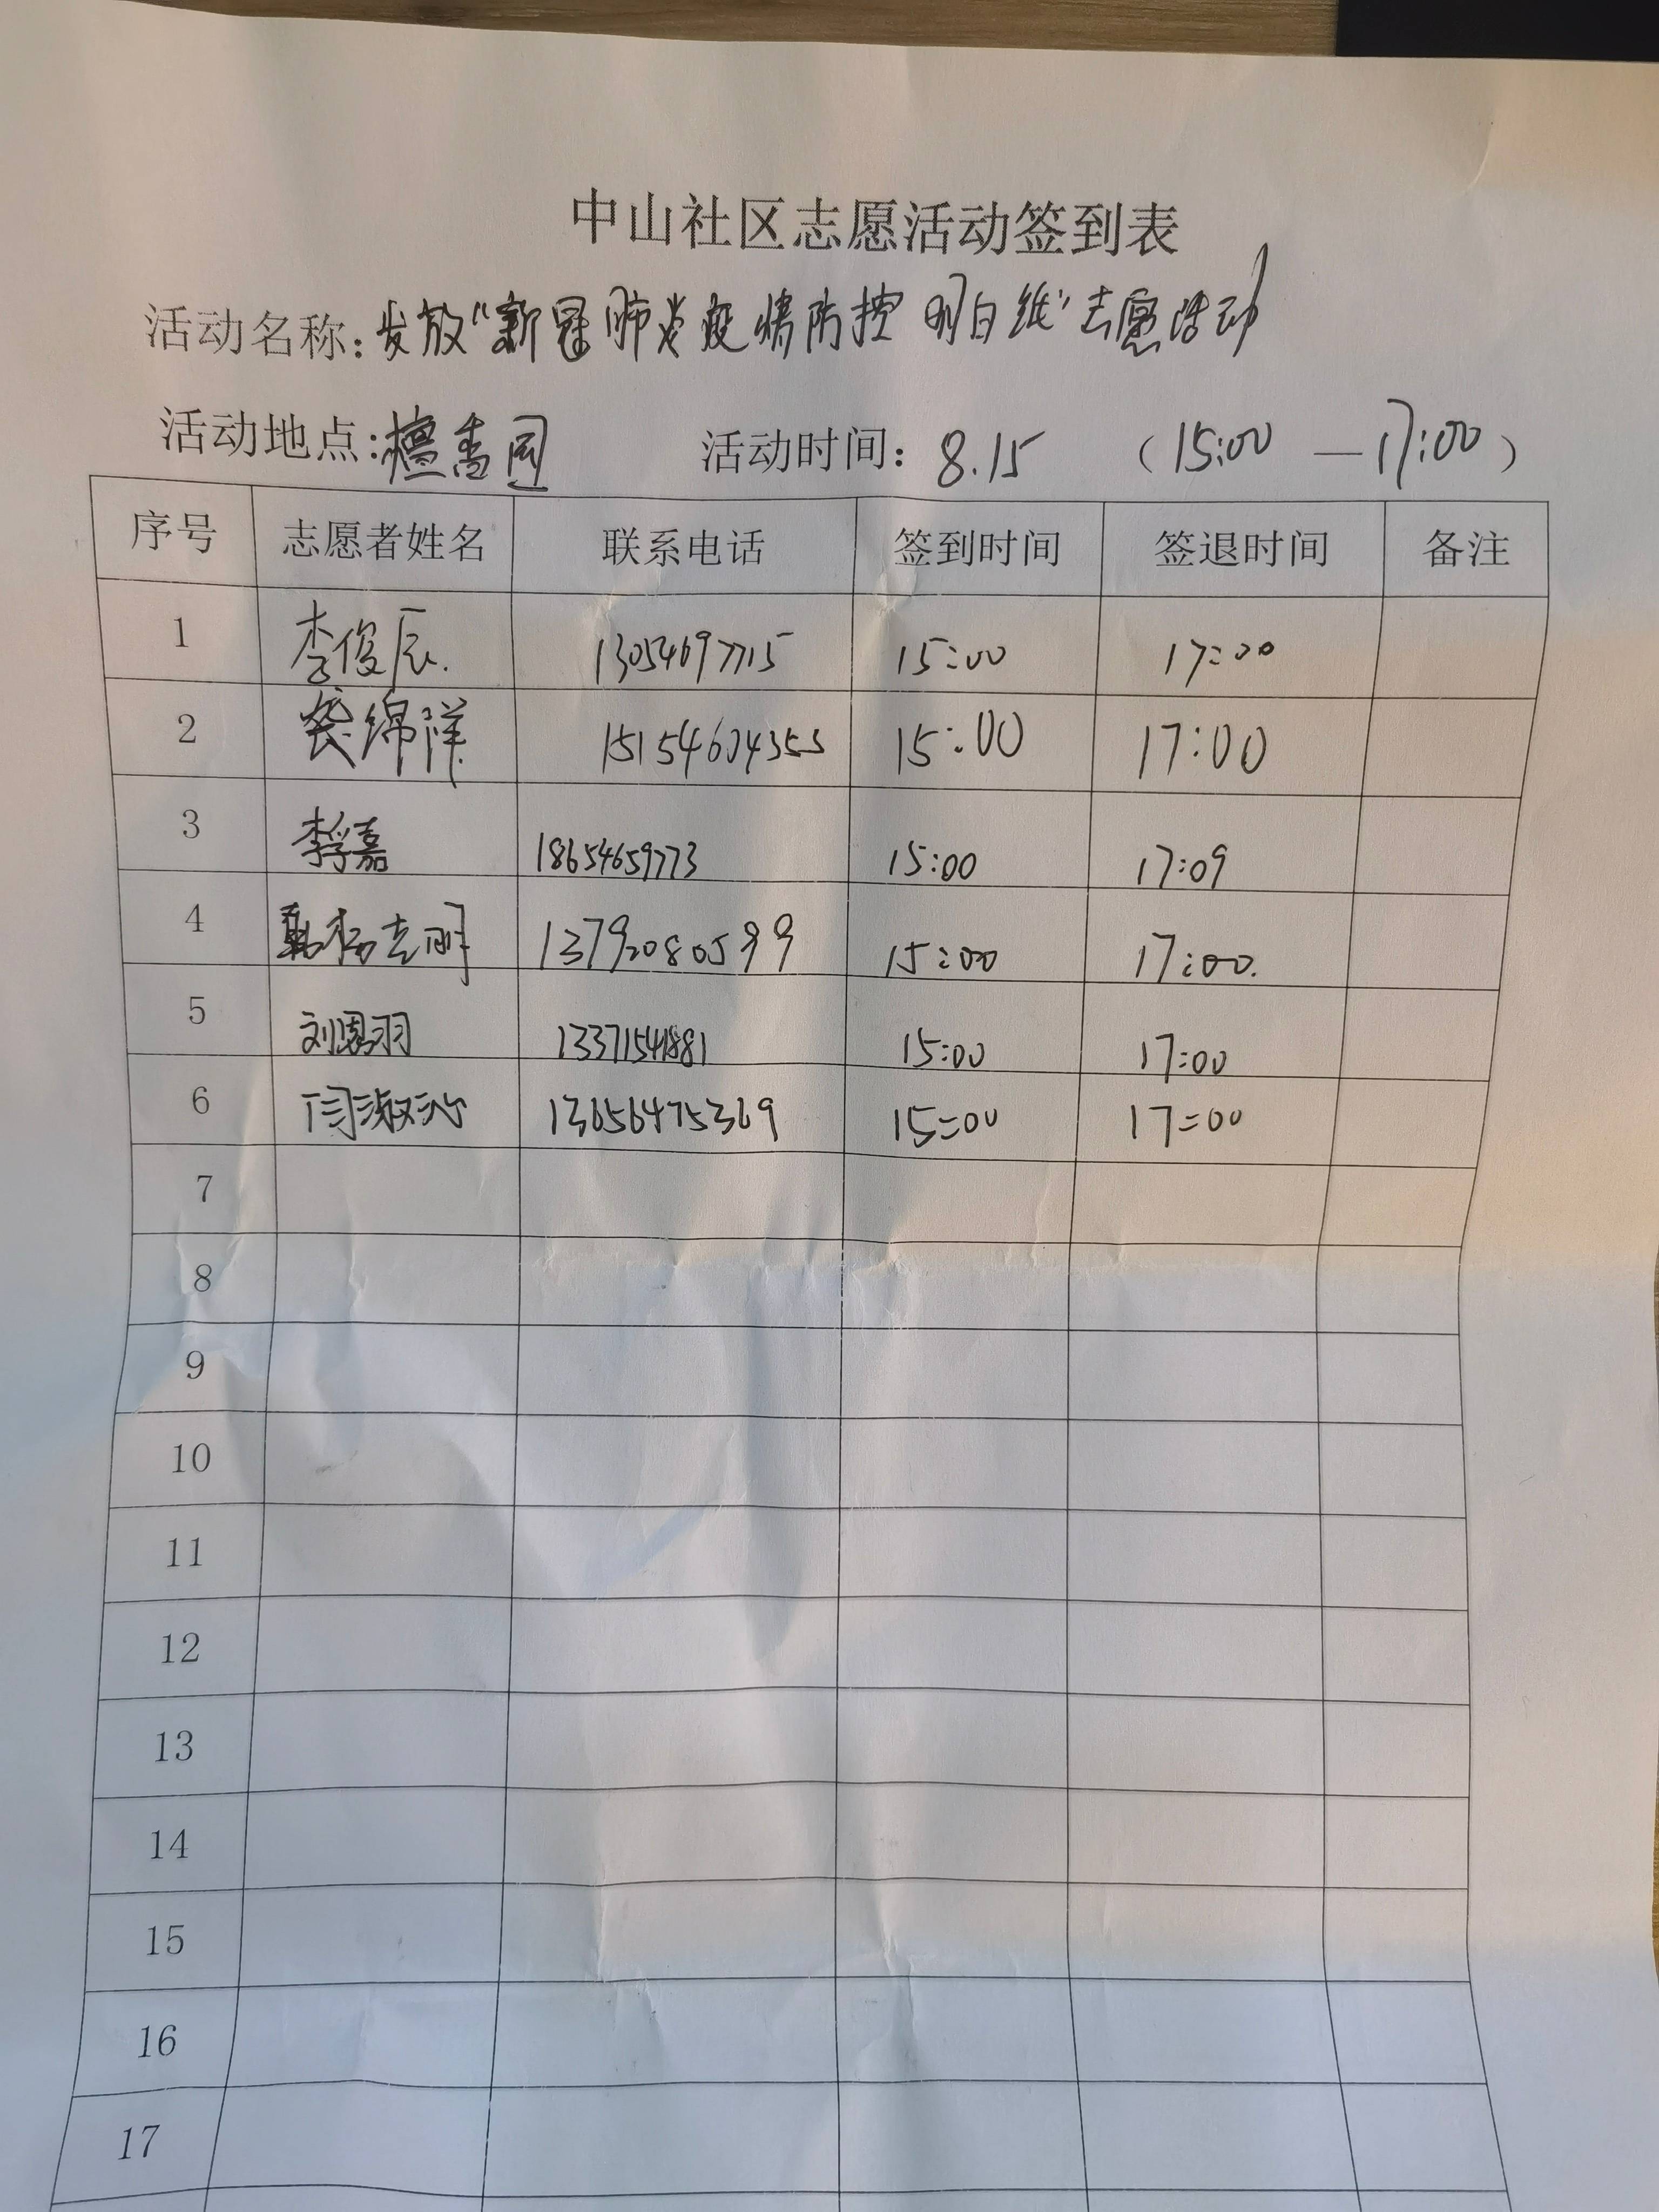 中山社区志愿活动签到表
活动名称:发放“新冠肺炎疫情防控明白纸”志愿活动
活动地点:檀香园 活动时间: 8.15 (15:00 — 17:00)
序号 志愿者姓名 联系电话 签到时间 签退时间 备注
1 李俊辰. 13054697715 15:00 17:00
2 袋绵洋 15154604353 15:00 17:00
3 李孚嘉 18654659773 15:00 17:09
4 杨志明 13792080599 15:00 17:00.
5 刘恩羽 13371541881 15:00 17:00
6 闫淑沁 13656475369 15:00 17:00
7
8
9
10
11
12
13
14
15
16
17